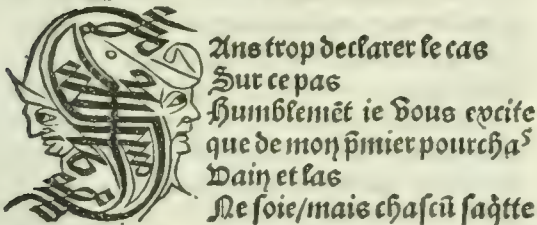 SAns trop declarer le cas
Sur ce pas
Humblemẽt ie vous excite
que de mon p̄mier pourchaˢ
Vain et las
Ne soie/mais chascũ saq̇tte